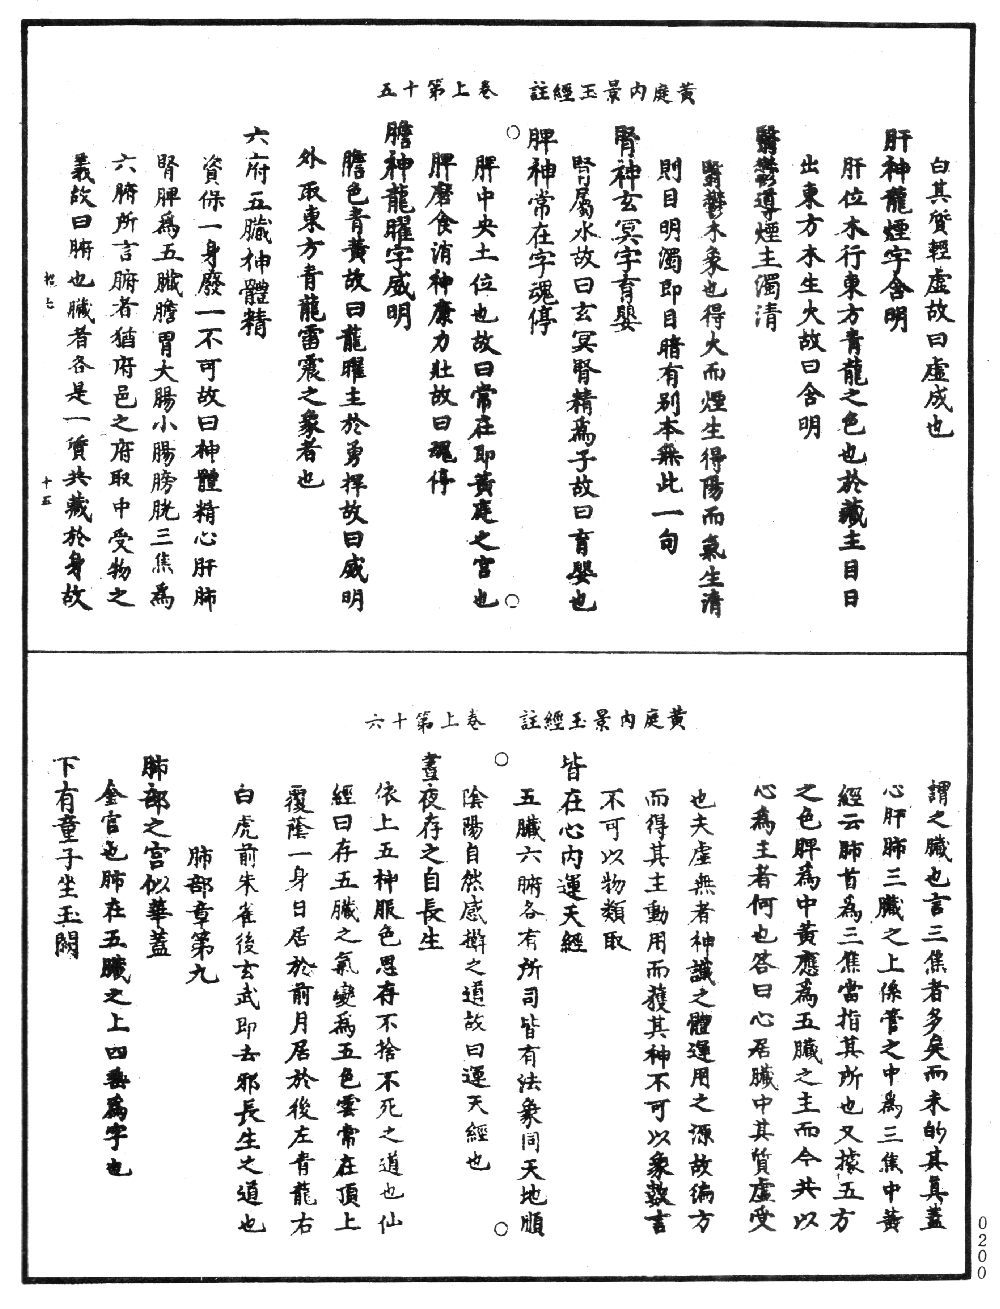 黃庭內景玉經註　卷上第十五
白其質輕虛故曰虛成也
肝神龍煙字含明
肝位木行東方青龍之色也於藏主目日
出東方木生火故曰含明
翳鬱導煙主濁清
翳鬱木象也得火而煙生得陽而氣生清
則目明濁即目暗有別本無此一句
腎神玄冥字育嬰
腎屬水故曰玄冥腎精為子故曰育嬰也
脾神常在字魂停
脾中央土位也故曰常在即黃庭之宮也
脾磨食消神康力壯故曰魂停
膽神龍曜字威明
膽色青黃故曰龍曜主於勇捍故曰威明
外取東方青龍雷震之象者也
六府五臟神體精
資保一身廢一不可故曰神體精心肝肺
腎脾為五臟膽胃大腸小腸膀胱三焦為
六腑所言腑者猶府邑之府取中受物之
義故曰腑也臟者各是一質共藏於身故
十五
黃庭內景玉經註　卷上第十六
謂之臟也言三焦者多矣而未的其真蓋
心肝肺三臟之上係管之中為三焦中黃
經云肺首為三焦當指其所也又據五方
之色脾為中黃應為五臟之主而今共以
心為主者何也答曰心居臟中其質虛受
也夫虛無者神識之體運用之源故徧方
而得其主動用而獲其神不可以象數言
不可以物類取
皆在心內運天經
五臟六腑各有所司皆有法象同天地順
陰陽自然感攝之道故曰運天經也
晝夜存之自長生
依上五神服色思存不捨不死之道也仙
經曰存五臟之氣變為五色雲常在頂上
覆蔭一身日居於前月居於後左青龍右
白虎前朱雀後玄武即去邪長生之道也
肺部章第九
肺部之宮似華蓋
金宮也肺在五臟之上四垂為宇也
下有童子坐玉闕
0200